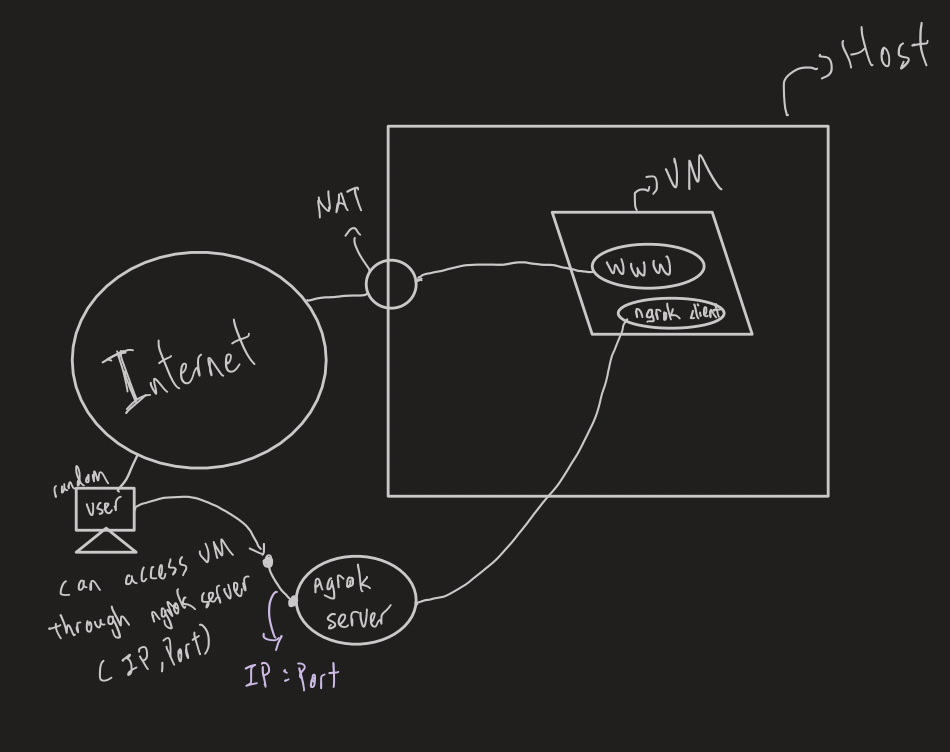 Host
VM
NAT
www
ngrok client
Internet
random
user
can access VM
through ngrok server
(IP, Port)
ngrok
server
IP : Port